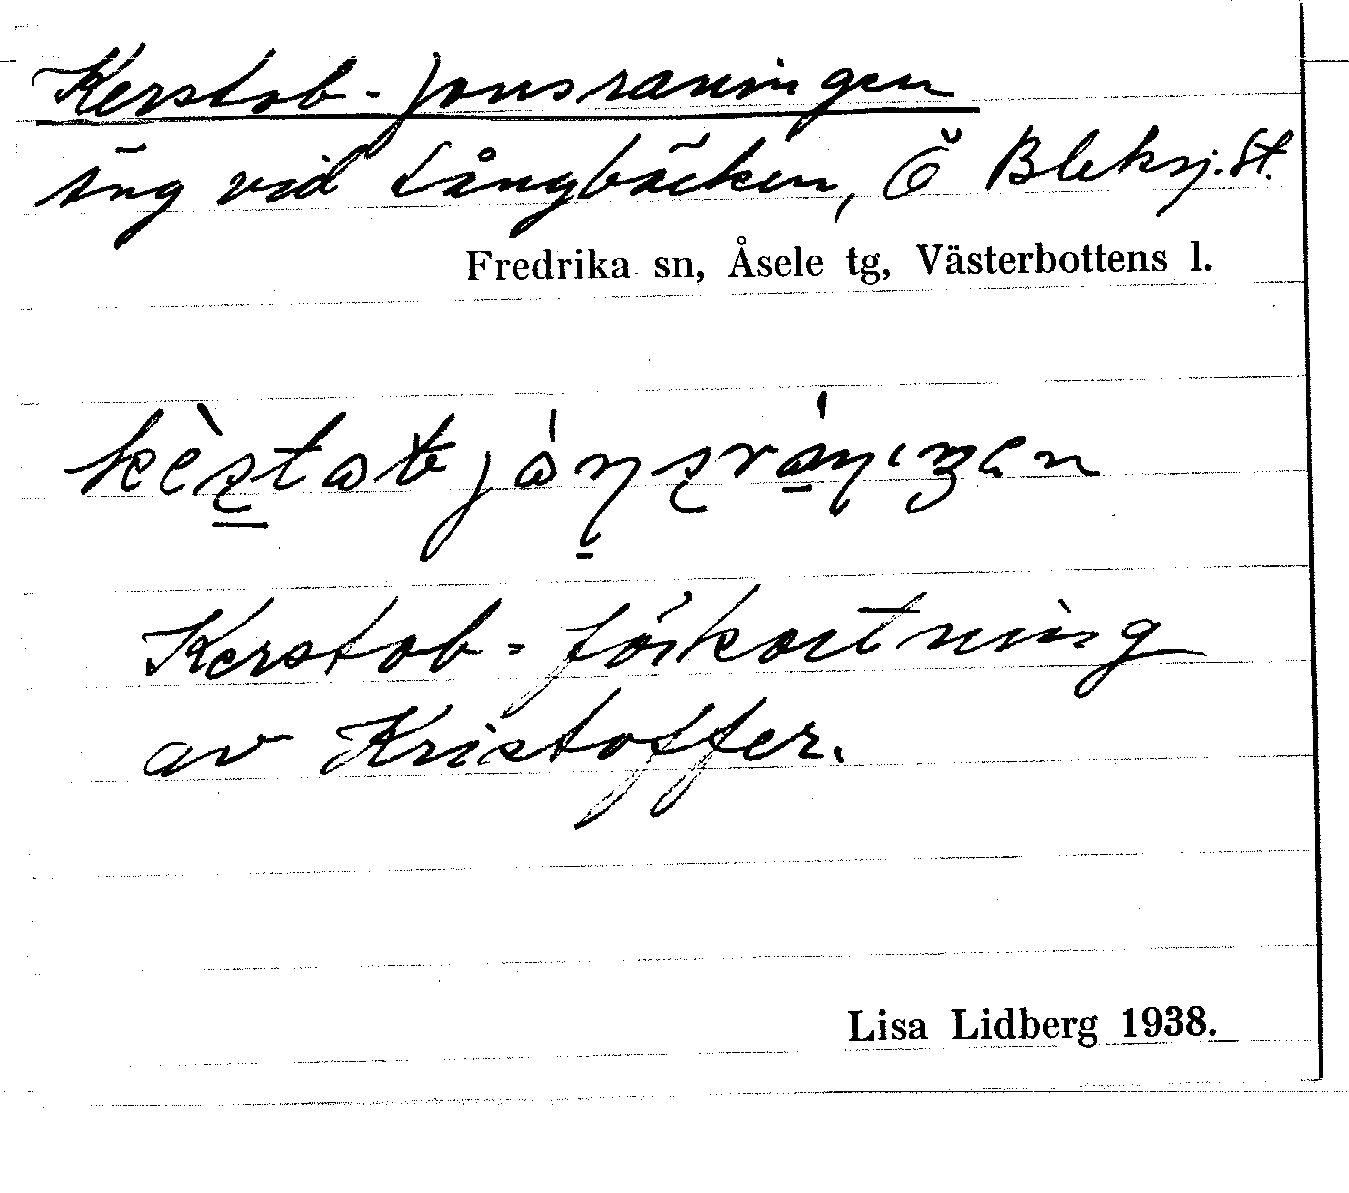 Kerstob-Jonsraningen
äng vid Långbäcken, Ö Bleksj. St.
Fredrika sn, Åsele tg, Västerbottens l.
Kerstob- förkortning
av Kristoffer.
Lisa Lidberg 1938.